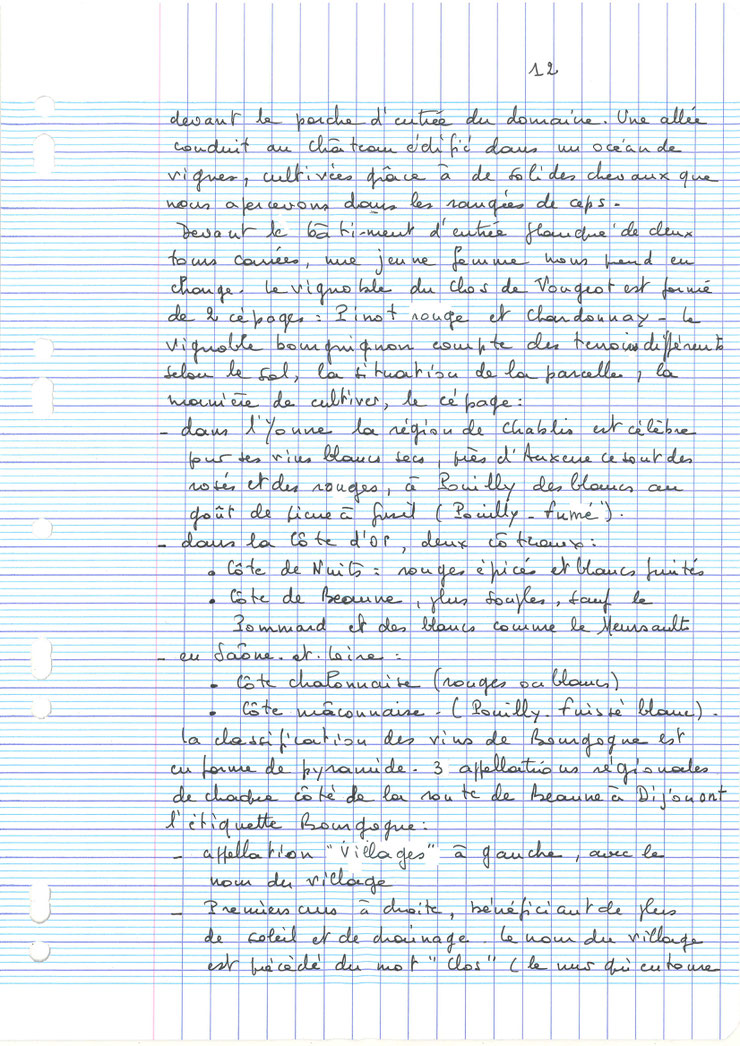 12
devant le porche d'entrée du domaine. Une allée
conduit au château édifié dans un océan de
vignes, cultivées grâce à de solides chevaux que
nous apercevons dans les rangées de ceps.
Devant le bâtiment d'entrée flanqué de deux
tours carrées, une jeune femme nous prend en
charge. Le vignoble du Clos de Vougeot est formé
de 2 cépages : Pinot rouge et Chardonnay - Le
vignoble bourguignon compte des terroirs différents
selon le sol, la situation de la parcelle, la
manière de cultiver, le cépage :
- dans l'Yonne la région de Chablis est célèbre
pour ses vins blancs secs, près d'Auxerre ce sont des
rosés et des rouges, à Pouilly des blancs au
goût de pierre à fusil (Pouilly-fumé").
- dans la Côte d'Or, deux côteaux :
• Côte de Nuits : rouges épicés et blancs fruités
• Côte de Beaune, plus souples, sauf le
Pommard et des blancs comme le Meursault
- en Saône-et-Loire :
• Côte chalonnaise (rouges ou blancs)
• Côte mâconnaise - (Pouilly-fuissé blanc).
La classification des vins de Bourgogne est
en forme de pyramide. 3 appellations régionales
de chaque côté de la route de Beaune à Dijon ont
l'étiquette Bourgogne :
- appellation "Villages" à gauche, avec le
nom du village
- Premiers crus à droite, bénéficiant de plus
de soleil et de drainage. Le nom du village
est précédé du mot "Clos" (le mur qui entoure